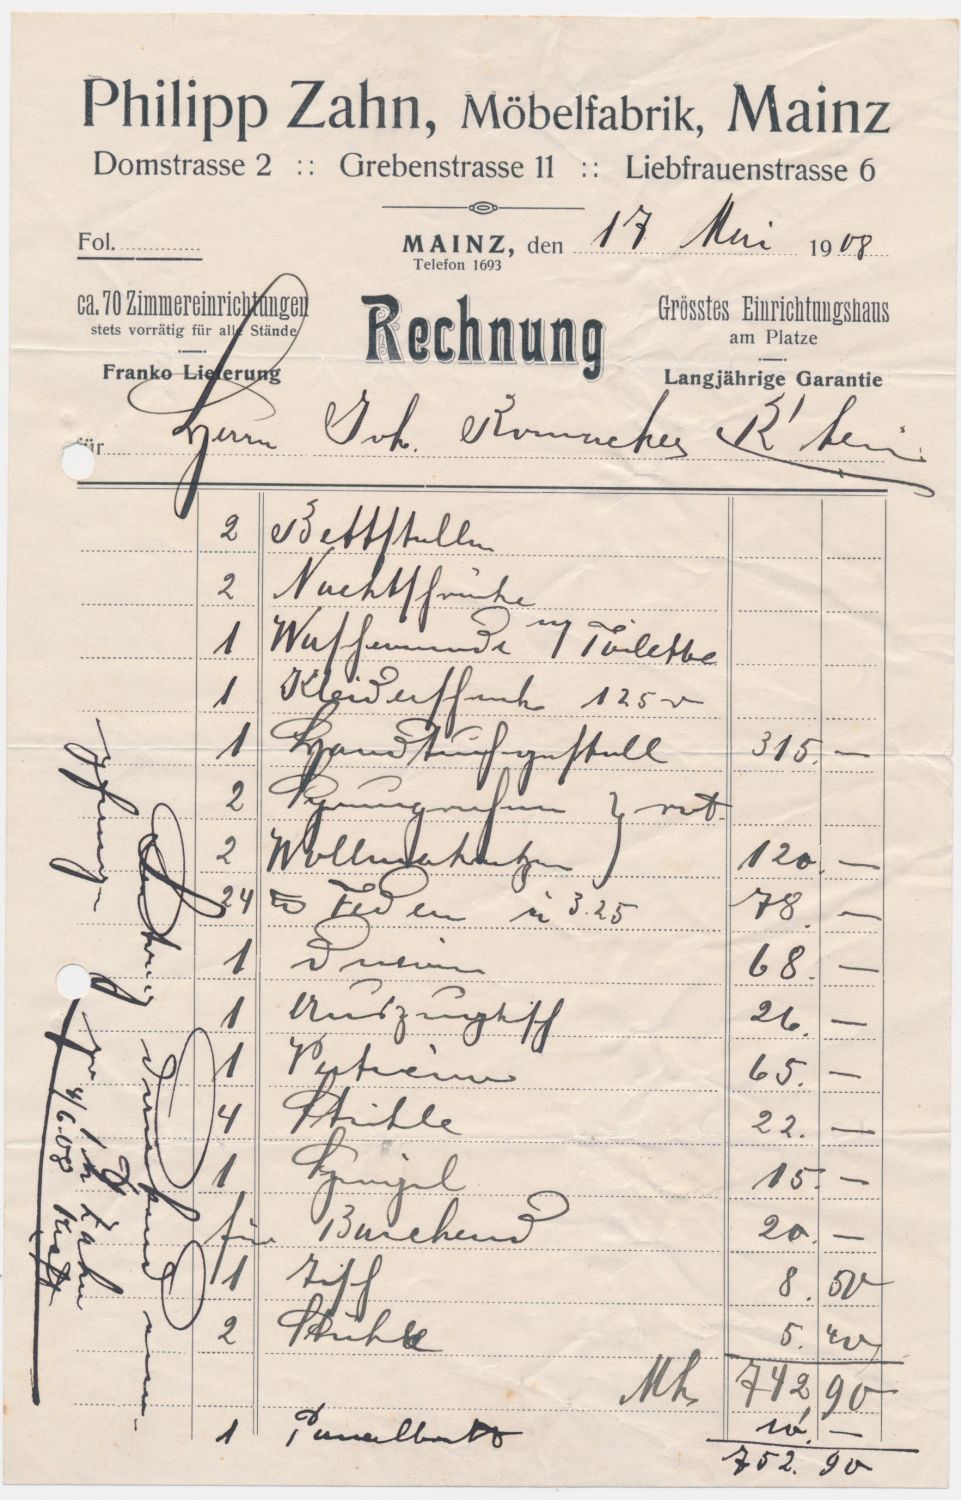 Philipp Zahn, Möbelfabrik, Mainz
Domstrasse 2 :: Grebenstrasse 11 :: Liebfrauenstrasse 6
Fol.
MAINZ, den 17 Mai 1908
Telefon 1693
ca. 70 Zimmereinrichtungen
stets vorrätig für alle Stände
Franko Lieferung
Rechnung
Grösstes Einrichtungshaus
am Platze
Langjährige Garantie
für Herrn Joh.
2 Bettstellen
2 Nachtschränke
1 Toilette
1 Kleiderschrank 125
1 Handtuchgestell 315. —
2 Sprungrahmen rot
2 Wollmatratzen 120. —
24 Federn à 3.25 78. —
1 68. —
1 Auszugtisch 26. —
1 65. —
4 Stühle 22. —
1 Spiegel 15. —
für Barchend 20. —
1 Tisch 8. 50
2 Stühle 5. 40
Mk 742 90
1 10. —
752. 90
dankend
Zahn
4/6.08